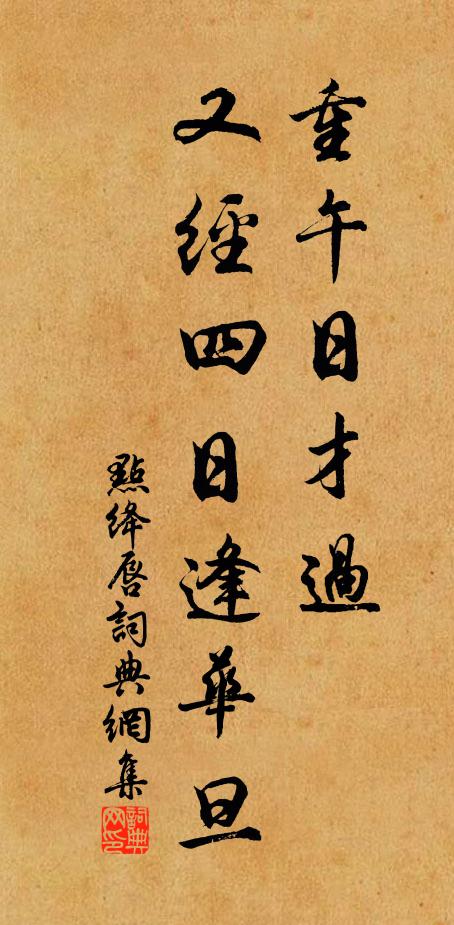 重午日才過
又經四日逢華旦
點絳唇詞典網集
詞典
网印